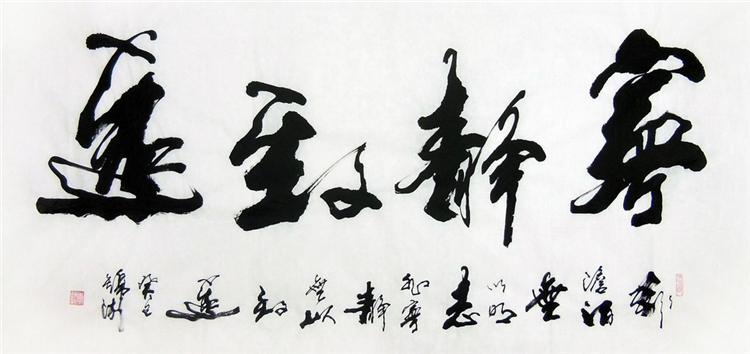 寧靜致遠
非澹泊無以明志非寧靜無以致遠
癸巳